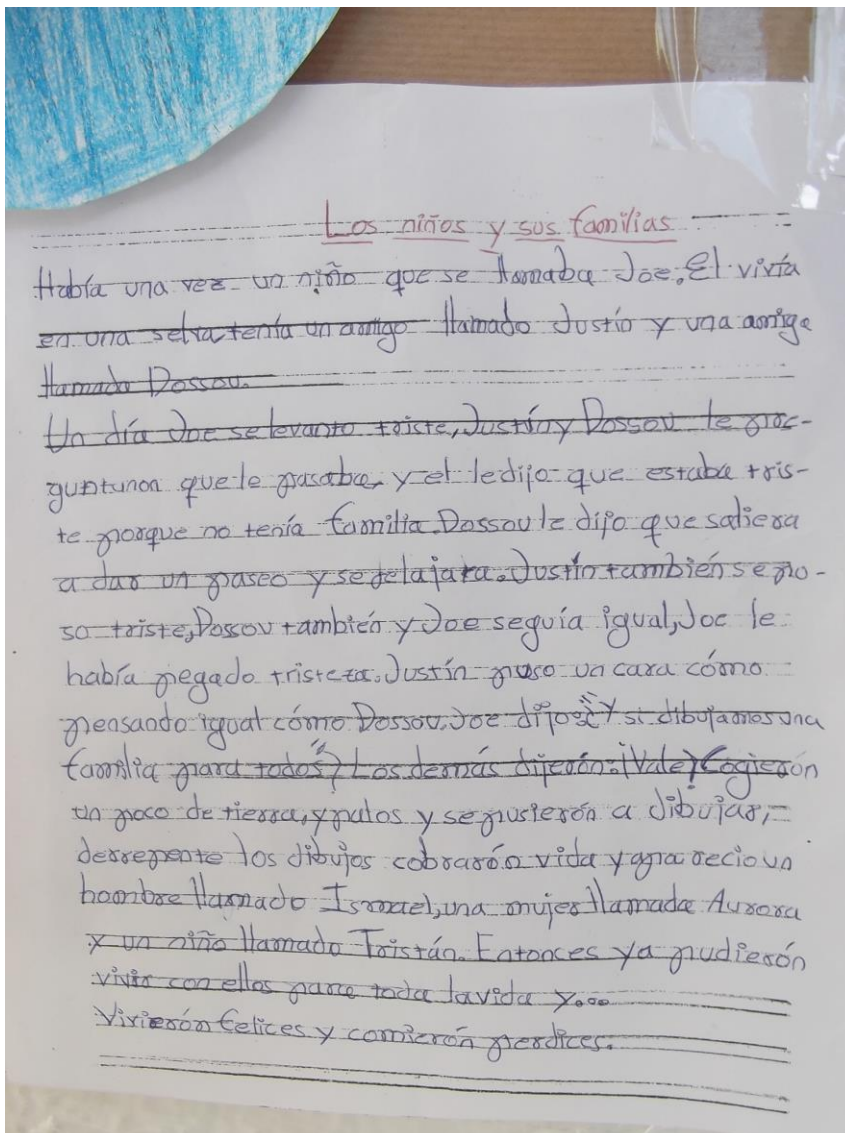 Los niños y sus familias
Había una vez un niño que se llamaba Joe. El vivía
en una selva, tenía un amigo llamado Justín y una amiga
llamado Dossou.
Un día Joe se levanto triste, Justín y Dossou le
que le pasaba, y el le dijo que estaba tris-
te porque no tenía familia. Dossou le dijo que saliera
a dar un paseo y se relajara. Justín también se pu-
so triste, Dossou también y Joe seguía igual, Joe le
había pegado tristeza. Justín puso un cara cómo
pensando igual cómo Dossou. Joe dijo: ¿Y si dibujamos una
familia para todos? Los demás dijerón: ¡Vale! Cogierón
un poco de tierra, y palos y se pusierón a dibujar,
derrepente los dibujos cobrarón vida y aparecio un
hombre llamado Ismael, una mujer llamada Aurora
y un niño llamado Tristán. Entonces ya pudierón
vivir con ellos para toda la vida y...
Vivierón felices y comierón perdices.